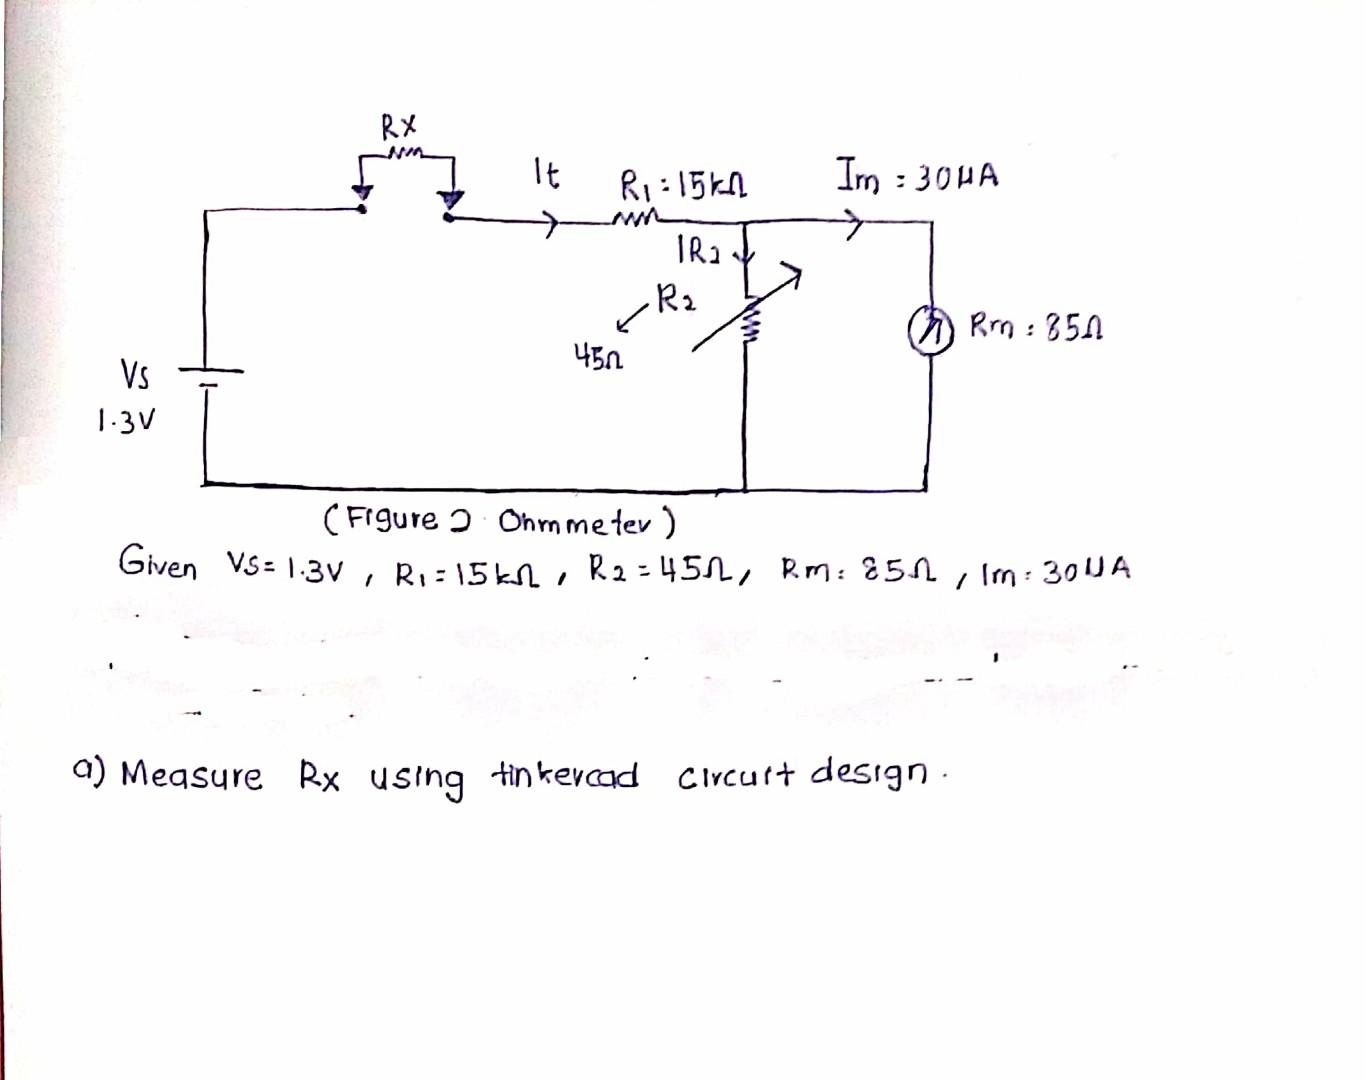 Rx
It
R1 = 15kΩ
Im = 30μA
IR2
R2
45Ω
Rm = 85Ω
Vs
1.3V
(Figure 2 Ohmmeter)
Given Vs = 1.3V, R1 = 15kΩ, R2 = 45Ω, Rm = 85Ω, Im = 30μA
a) Measure Rx using tinkercad circuit design.